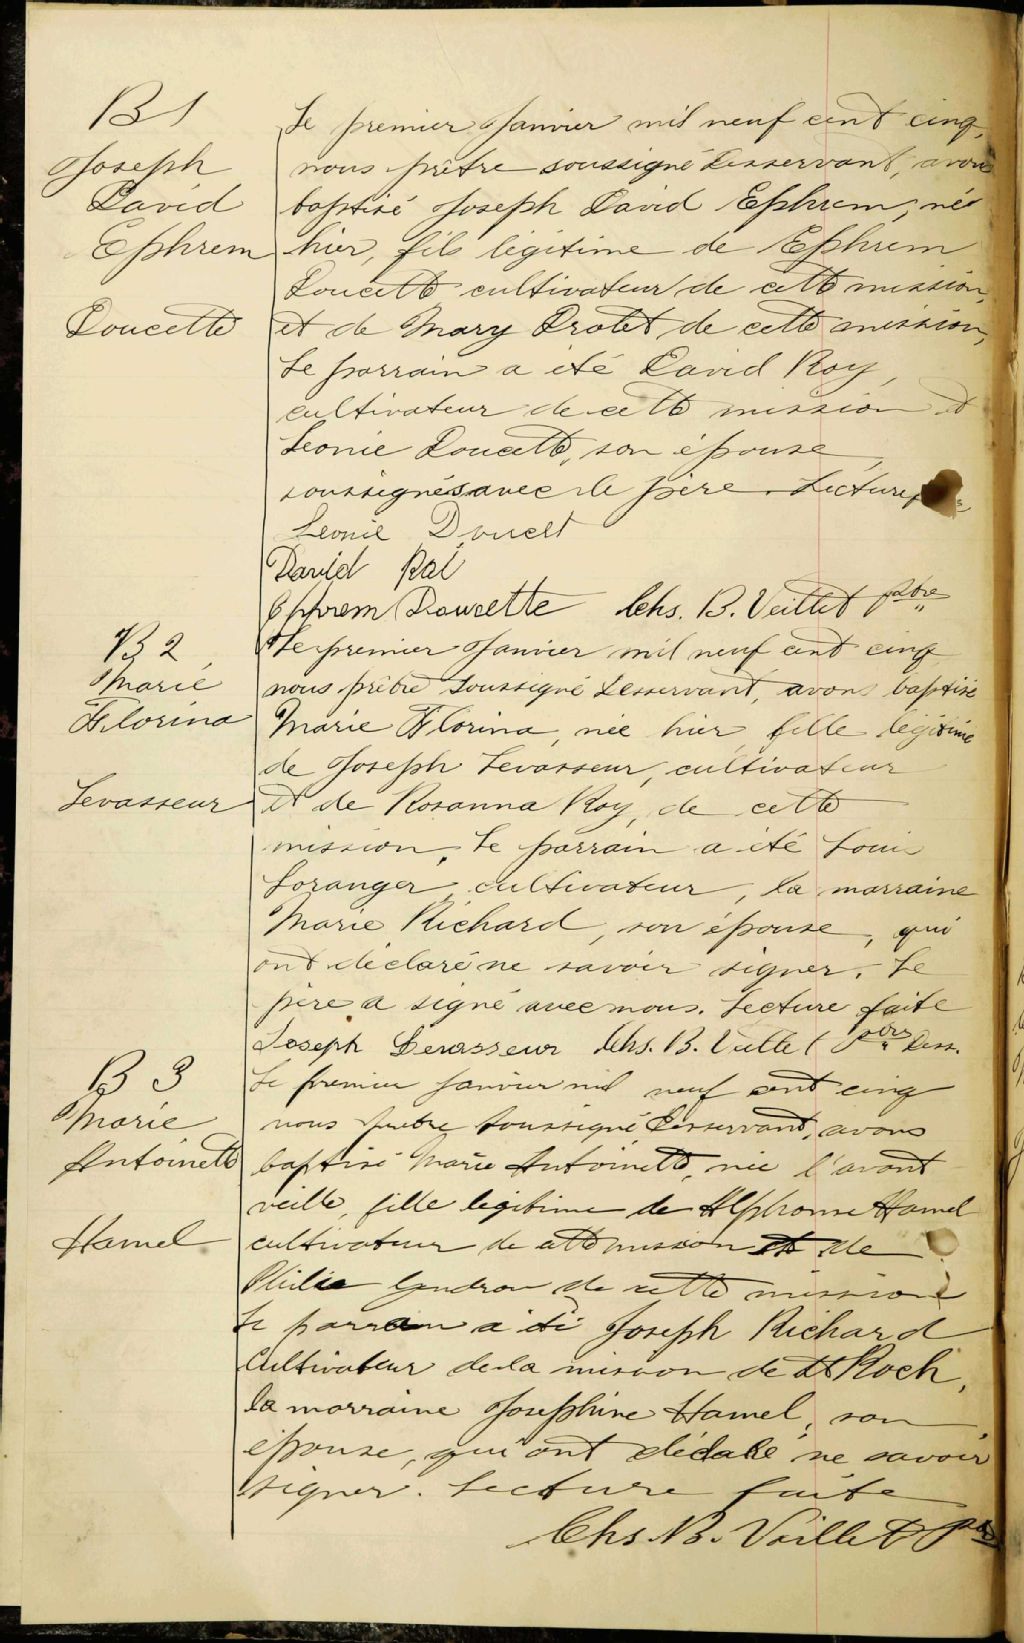 B 1
Joseph
David
Ephrem
Doucette
Le premier Janvier mil neuf cent cinq,
nous prêtre soussigné Desservant, avons
baptisé Joseph David Ephrem, né
hier, fils légitime de Ephrem
Doucette cultivateur de cette mission,
et de Mary Drolet de cette mission,
Le parrain a été David Roy,
cultivateur de cette mission et
Leonie Doucette, son épouse,
soussignés avec le père. Lecture
Leonie Doucet
David Roi
Ephrem Doucette Chs. B. Veillet ptre
B 2
Marie
Florina
Levasseur
Le premier Janvier mil neuf cent cinq
nous prêtre soussigné Desservant, avons baptisé
Marie Florina, née hier, fille légitime
de Joseph Levasseur, cultivateur
et de Rosanna Roy, de cette
mission. Le parrain a été Louis
Loranger, cultivateur, la marraine
Marie Richard, son épouse, qui
ont déclaré ne savoir signer. Le
père a signé avec nous. Lecture faite
Joseph Levasseur Chs. B. Veillet ptre Dess.
B 3
Marie
Antoinette
Hamel
Le premier Janvier mil neuf cent cinq
nous prêtre soussigné Desservant, avons
baptisé Marie Antoinette, née l'avant
veille, fille légitime de Alphonse Hamel
cultivateur de cette mission et de
Gendron de cette mission
Le parrain a été Joseph Richard
Cultivateur de la mission de St Roch,
la marraine Josephine Hamel, son
épouse, qui ont déclaré ne savoir
signer. Lecture faite
Chs. B. Veillet Ptre